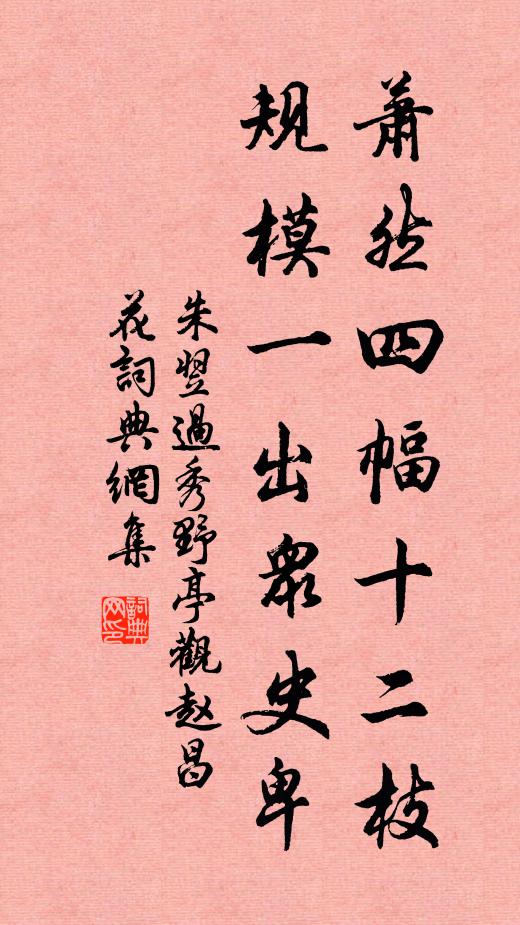 蕭然四幅十二枝
規模一出衆史卑
朱翌過秀野亭觀赵昌
花詞典網集
詞典网印